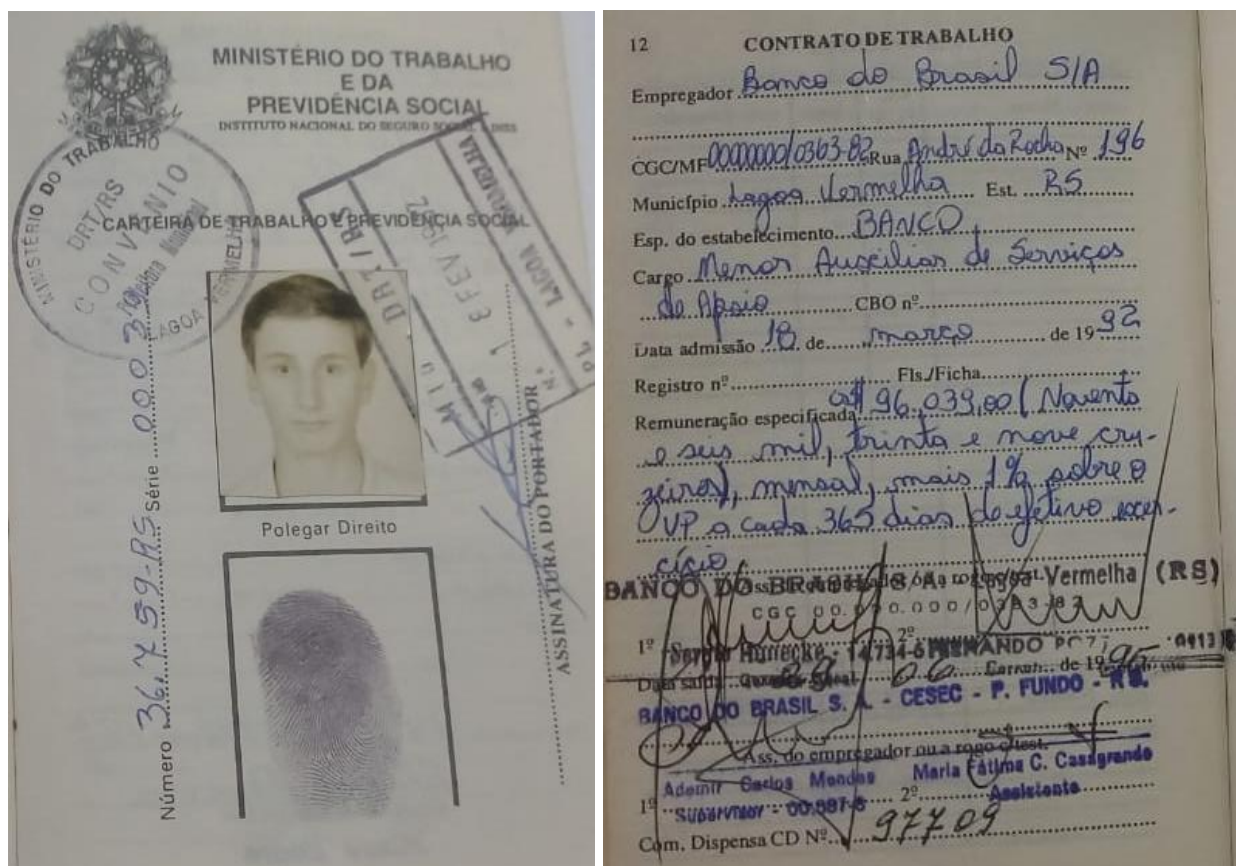 MINISTÉRIO DO TRABALHO
E DA
PREVIDÊNCIA SOCIAL
INSTITUTO NACIONAL DO SEGURO SOCIAL - INSS
MINISTÉRIO DO TRABALHO
DRT/RS
CONVÊNIO
LAGOA VERMELHA
CARTEIRA DE TRABALHO E PREVIDÊNCIA SOCIAL
DRT/RS
LAGOA VERMELHA
18 FEV 1992
Número 36.759-RS Série
Polegar Direito
ASSINATURA DO PORTADOR
12 CONTRATO DE TRABALHO
Empregador Banco do Brasil S/A
CGC/MF 00000000/0363-82 Rua André da Rocha Nº 196
Município Lagoa Vermelha Est. RS
Esp. do estabelecimento BANCO
Cargo Menor Auxiliar de Serviços
de Apoio CBO nº
Data admissão 18 de março de 1992
Registro nº Fls./Ficha
Remuneração especificada 96.039,00 (Noventa
e seis mil, trinta e nove cru-
zeiros), mensal, mais 1% sobre o
VP a cada 365 dias de efetivo exer-
cício
BANCO DO BRASIL S.A. Lagoa Vermelha (RS)
1º 2º
Data saída 06 de 1995
BANCO DO BRASIL S.A. - CESEC - P. FUNDO - RS.
Ass. do empregador ou a rogo c/test.
Ademir Carlos Mendes Maria Fátima C. Casagrande
1º Supervisor 2º Assistente
Com. Dispensa CD Nº 97709